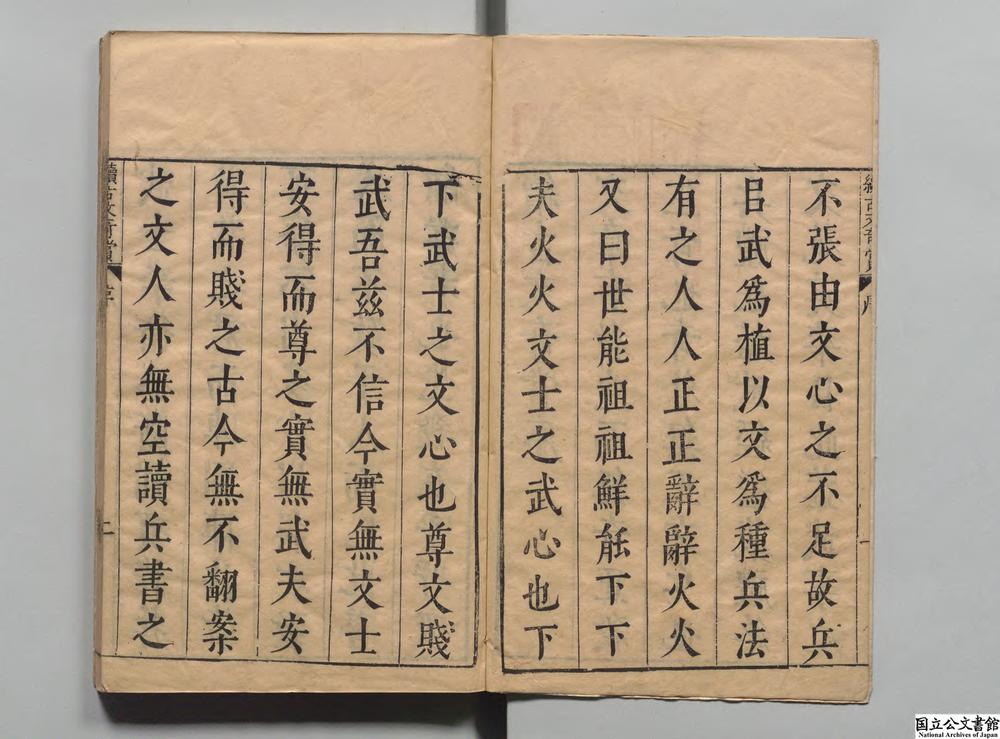 不張由文心之不足故兵
㠯武爲植以文爲種兵法
有之人人正正辭辭火火
又曰世能祖祖鮮能下下
夫火火文士之武心也下
下武士之文心也尊文賤
武吾兹不信今實無文士
安得而尊之實無武夫安
得而賤之古今無不翻案
之文人亦無空讀兵書之
序
二
国立公文書館
National Archives of Japan